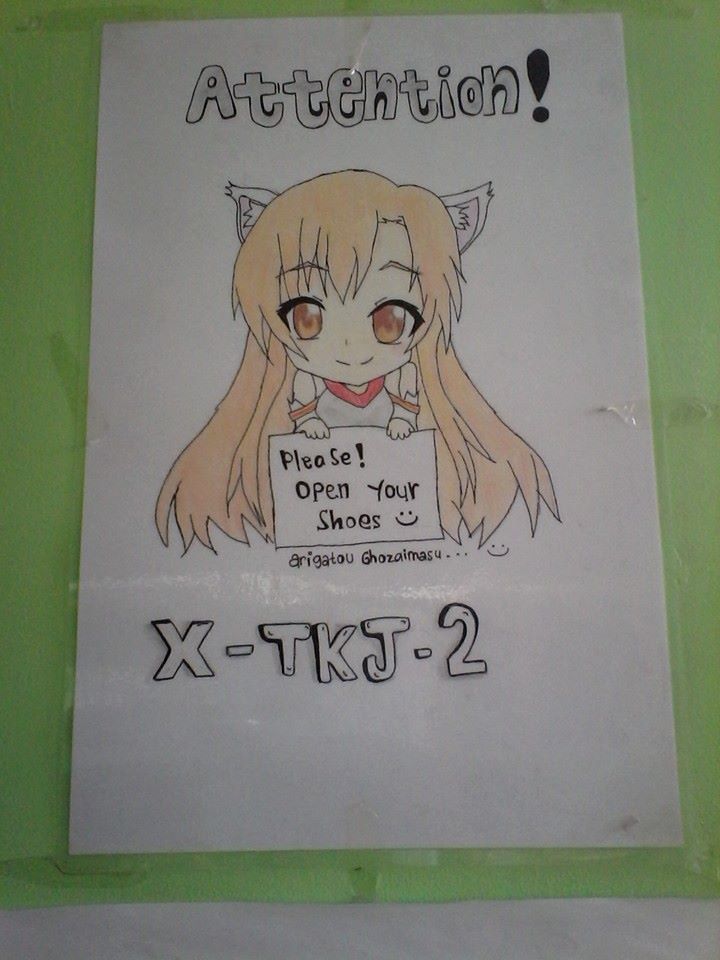 Attention!
Please!
Open Your
Shoes ☺
arigatou Ghozaimasu... ☺
X-TKJ-2